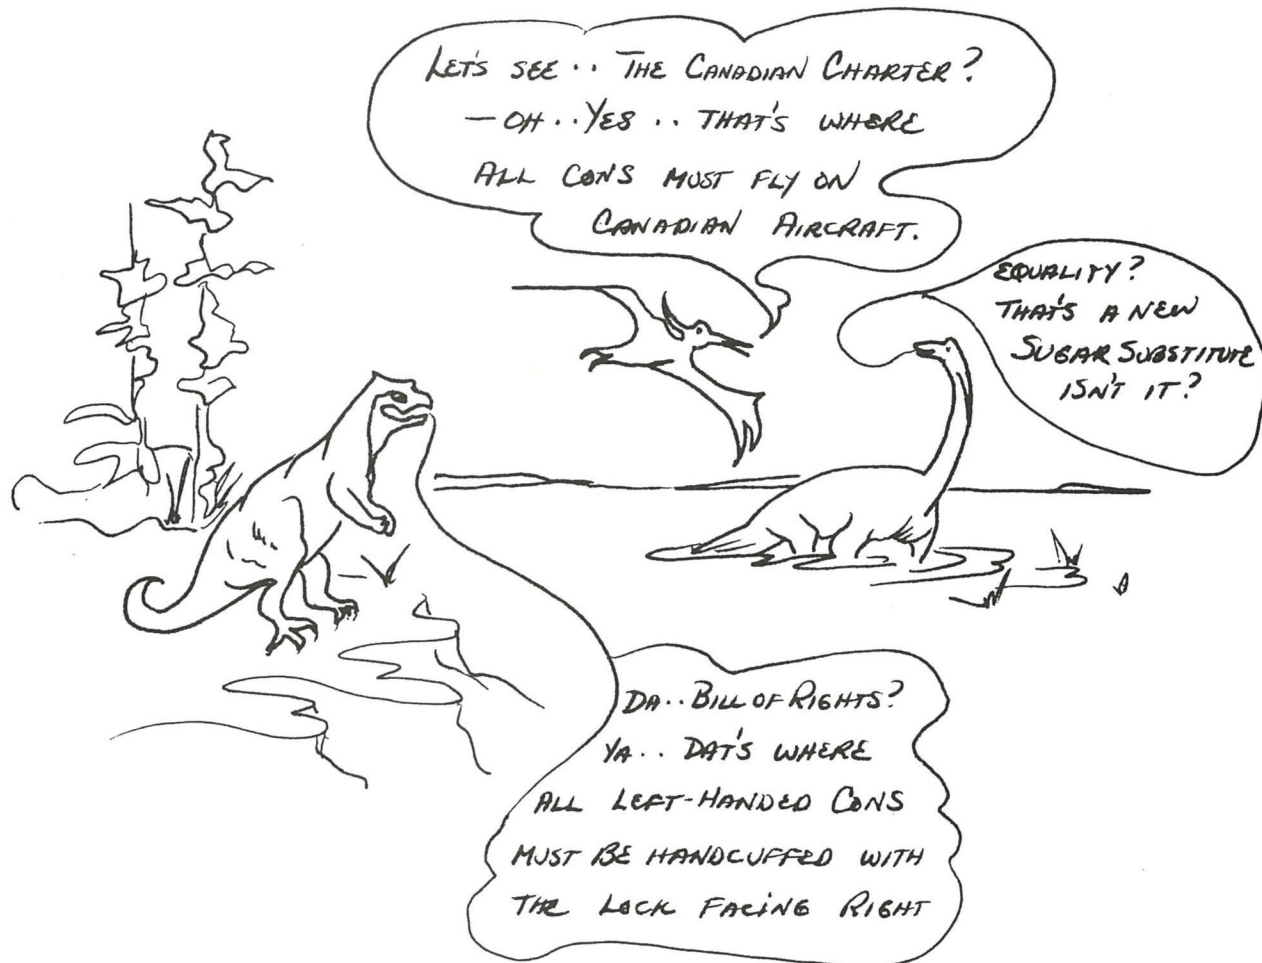 LET'S SEE .. THE CANADIAN CHARTER?
— OH .. YES .. THAT'S WHERE
ALL CONS MUST FLY ON
CANADIAN AIRCRAFT.
EQUALITY?
THAT'S A NEW
SUGAR SUBSTITUTE
ISN'T IT?
DA .. BILL OF RIGHTS?
YA .. DAT'S WHERE
ALL LEFT-HANDED CONS
MUST BE HANDCUFFED WITH
THE LOCK FACING RIGHT